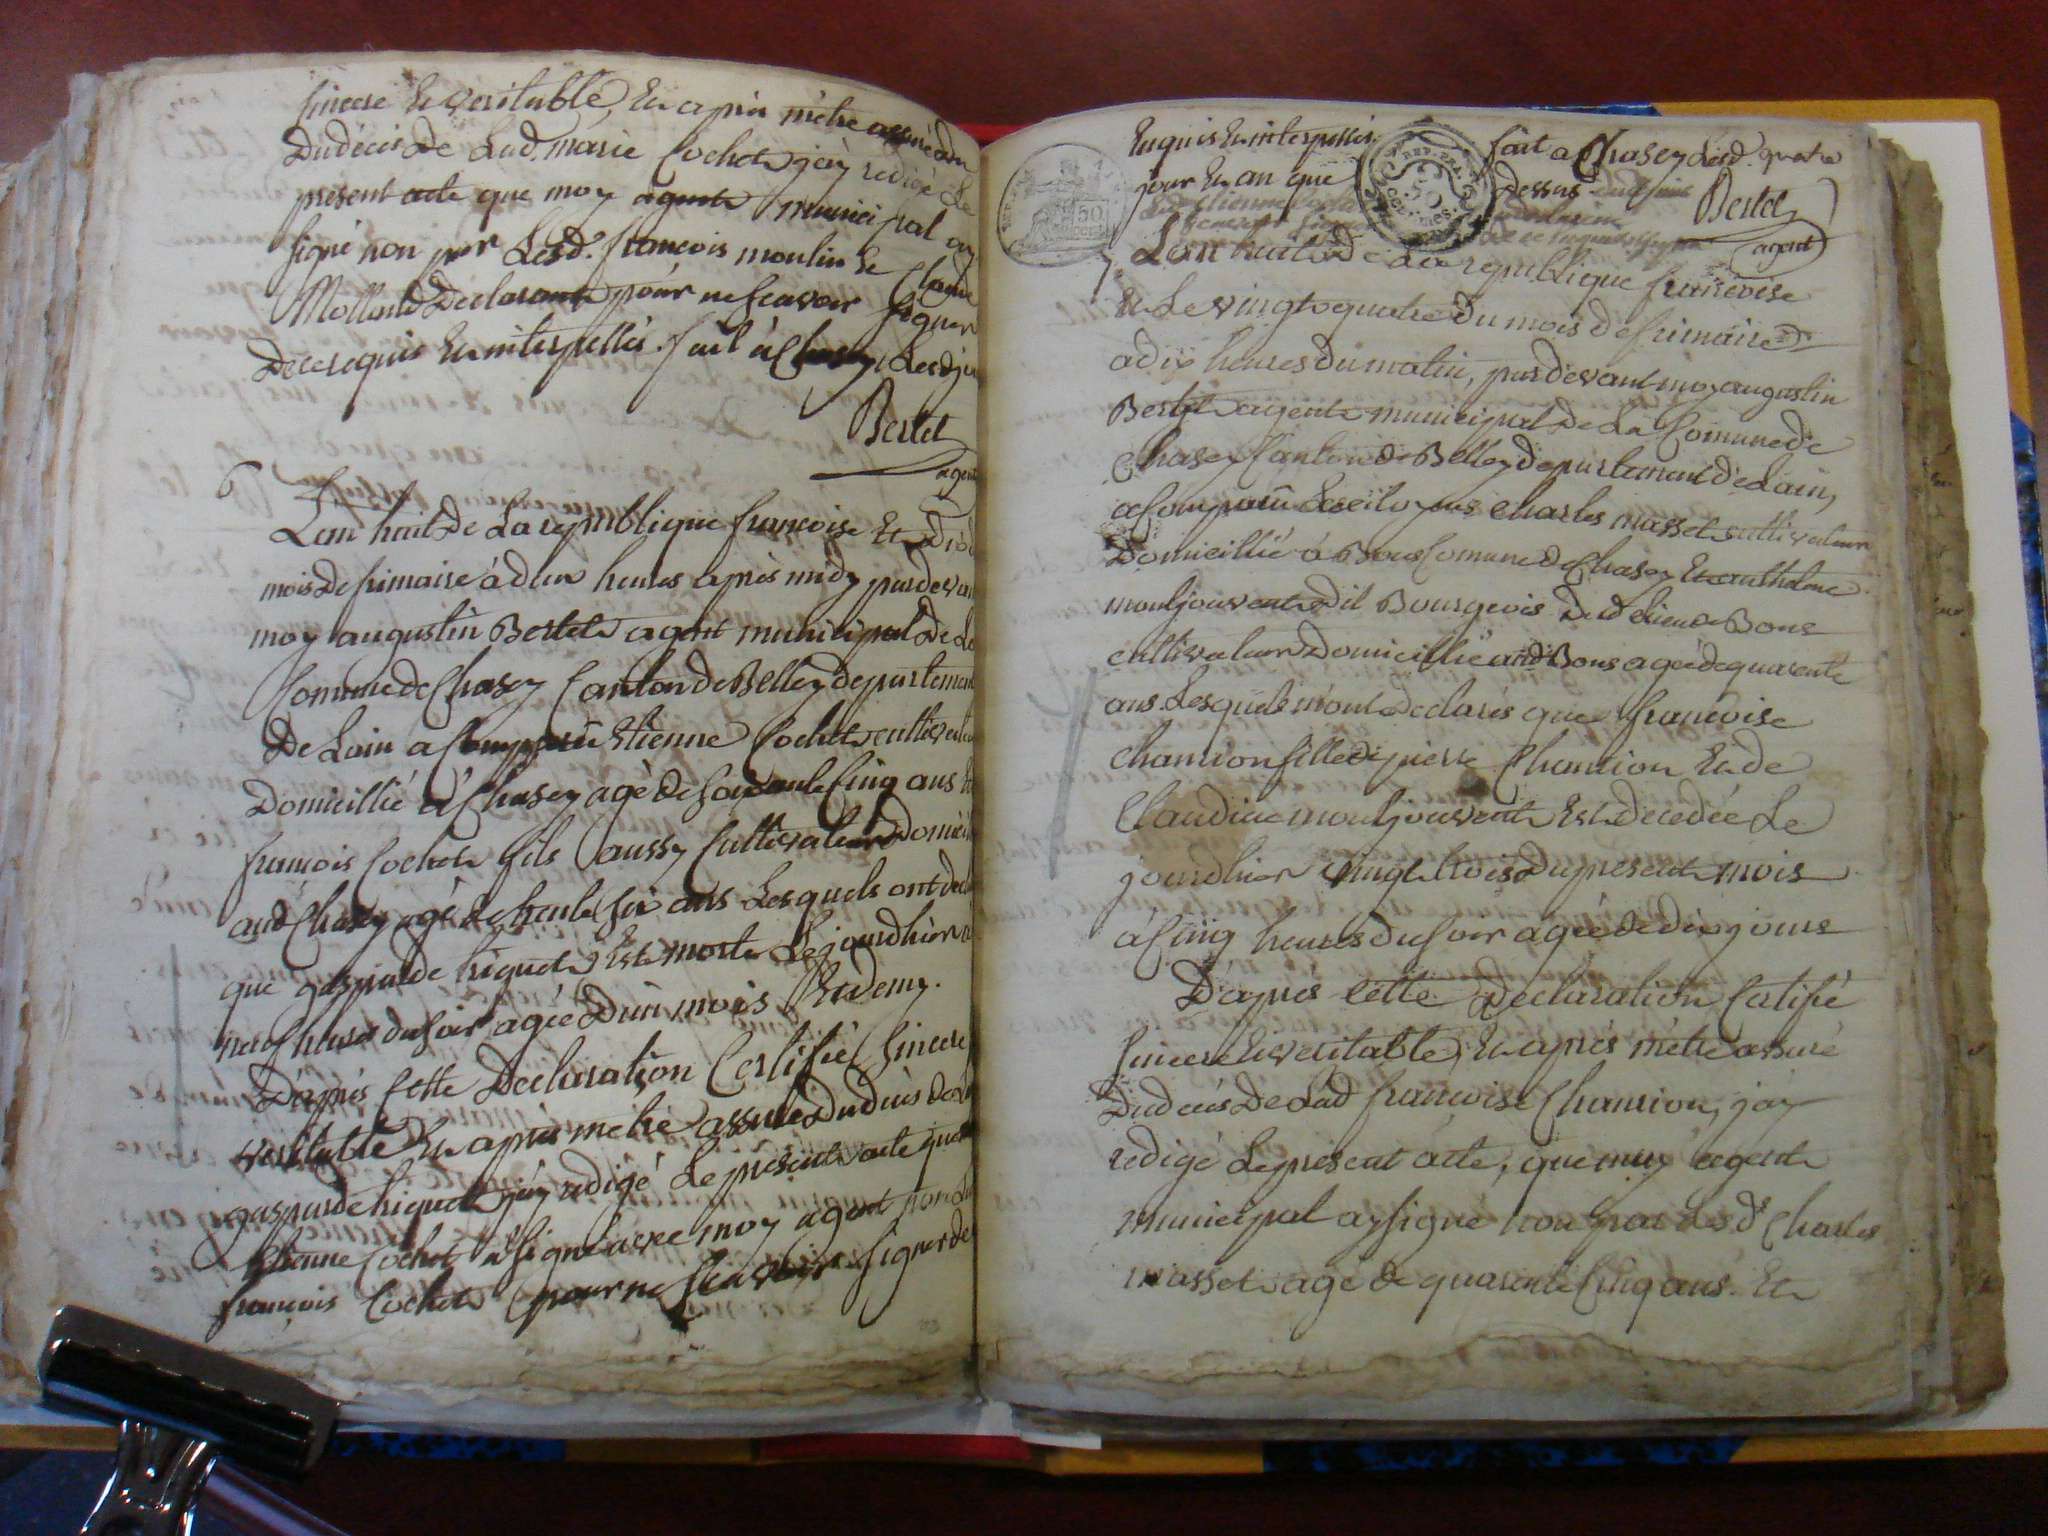 sincere & veritable, & apres m'etre assuré du
Dudécès De Lad. marie Cochet j'ay redigé Le
présent acte que moy agent municipal ay
signé non par Lesd. francois moulin &
Mollard Declarants pour ne scavoir signer
De ce requis & interpellés. fait à Chasey, Lesd jour
Bertet
agent
6
L'an huit De La republique francoise &
mois De frimaire à deux heures après midy pardevant
moy augustin Bertet agent municipal De La
Comune de Chasey Canton de Belley departement
De Lain a Comparû Etienne Cochet cultivateur
Domicillié à Chasey agé De soixante cinq ans &
francois Cochet fils aussy Cultivateur Domicillié
aud Chasey agé de trente six ans Lesquels ont declaré
que gasparde Liquet Est morte Le jourdhier a
neuf heures du soir agée Dun mois & demy.
D'apres Cette Declaration Certifié sincere
veritable & apres metre assuré Dudécès de Lad
gasparde jay redigé Le present acte que
Etienne Cochet a signé avec moy agent non
francois Cochet pour ne scavoir signer de
Requis & interpellés. fait a Chasey Lesd. quatre
jour & an que Dessus
REP. FRA.
50
cent.
Bertet
agent
7. L'an huit de La republique francoise
& Le vingt quatre du mois de frimaire
a dix heures du matin, pardevant moy augustin
Bertet agent municipal De La Comune de
Chasey Canton de Belley departement De Lain,
a Comparû Les citoyens Charles masset cultivateur
Domicillié à Bons Comune de Chasey & anthelme
montjouvent dit Bourgeois Dud Lieu de Bons
cultivateur Domicillié aud Bons agé de quarente
ans Lesquels m'ont Declarés que francoise
Chamion fille de pierre Chamion & de
Claudine montjouvent Est decedée Le
jourdhier vingt trois du present mois
à Cinq heures du soir agée de dix jours
D'apres Cette Declaration Certifié
sincere & veritable, & apres métre assuré
Dudecés De Lad francoise Chamion, jay
redigé Le present acte, que moy agent
municipal ay signé non par Lesd. Charles
masset agé de quarente Cinq ans &